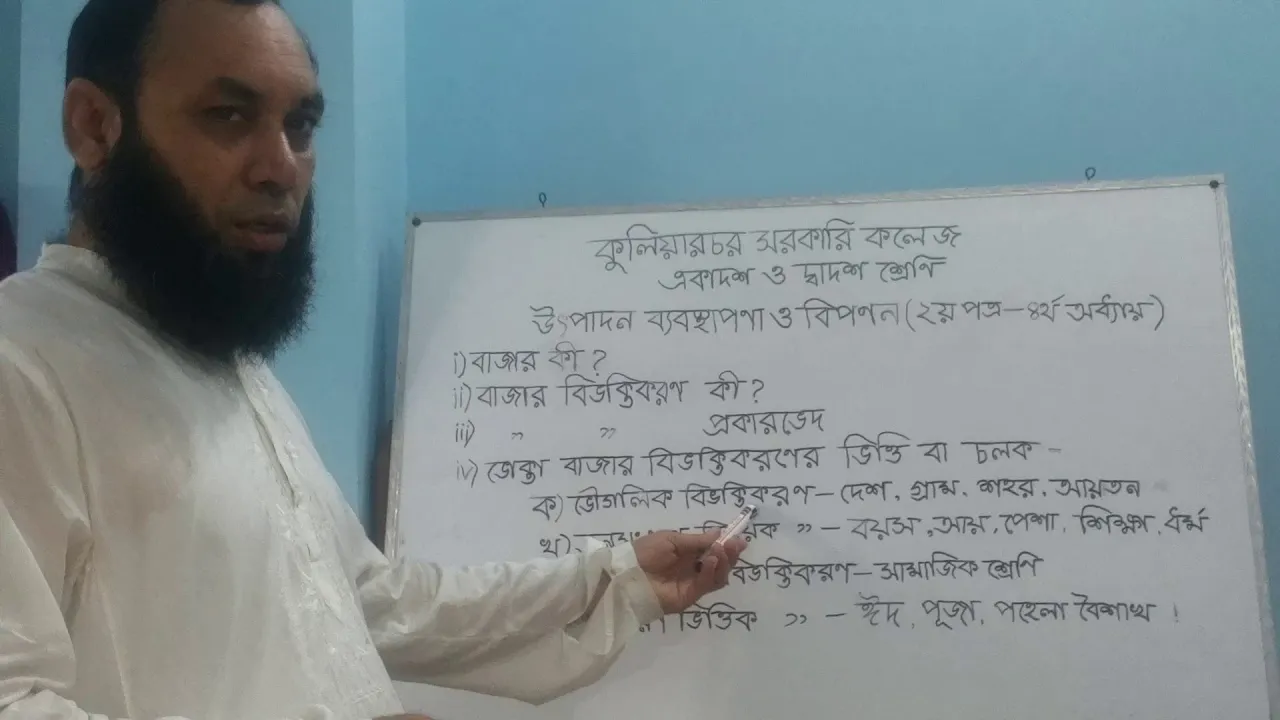 কুলিয়ারচর সরকারি কলেজ
একাদশ ও দ্বাদশ শ্রেণি
উৎপাদন ব্যবস্থাপনা ও বিপণন (২য় পত্র - ৪র্থ অধ্যায়)
i) বাজার কী ?
ii) বাজার বিভক্তিকরণ কী ?
iii) " " প্রকারভেদ
iv) ভোক্তা বাজার বিভক্তিকরণের ভিত্তি বা চলক -
ক) ভৌগলিক বিভক্তিকরণ - দেশ, গ্রাম, শহর, আয়তন
খ) " - বয়স, আয়, পেশা, শিক্ষা, ধর্ম
বিভক্তিকরণ - সামাজিক শ্রেণি
ভিত্তিক " - ঈদ, পূজা, পহেলা বৈশাখ ।